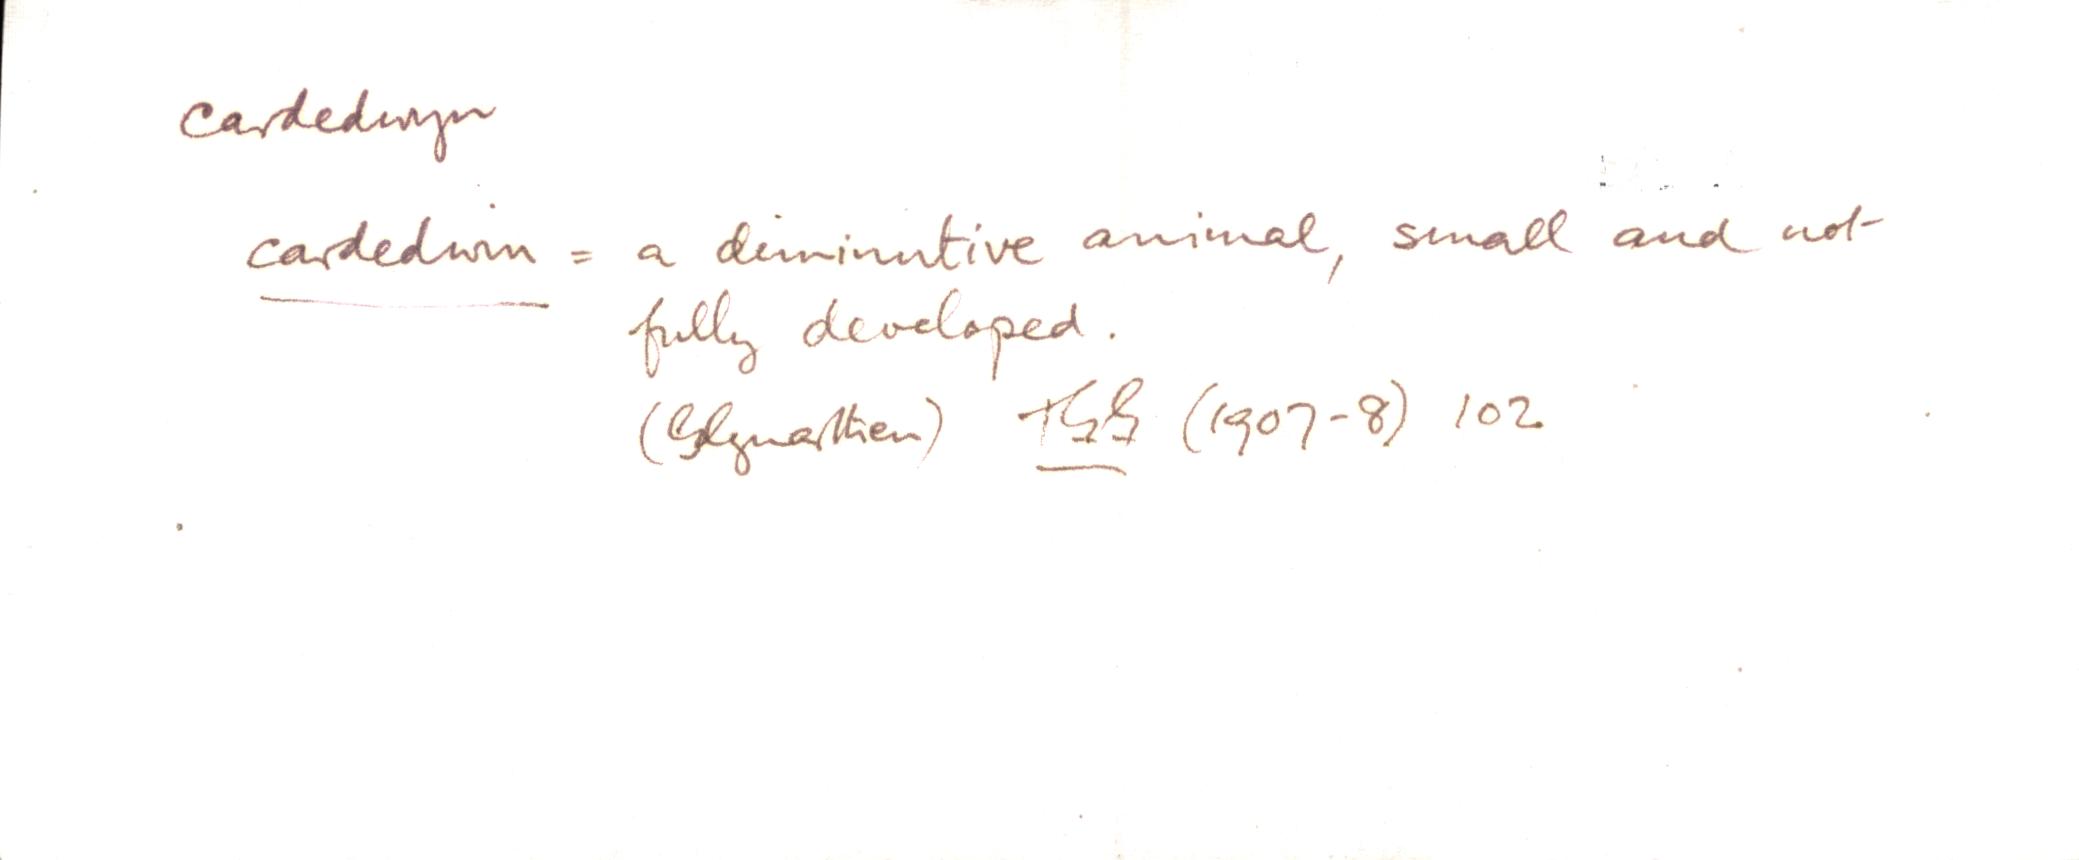 cardedwyn
cardedwin = a diminutive animal, small and not
fully developed.
(Edgnarthien) THSS (1907-8) 102